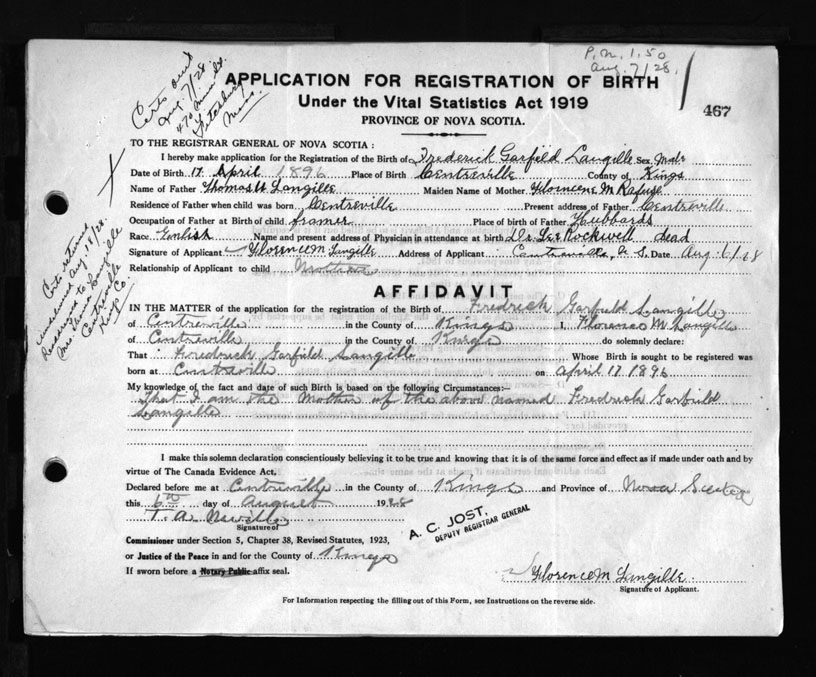 P.M. 1.50
Aug. 7/28.
467
Certs out
Aug. 7/28.
470 Main St.
Fitchburg
Mass.
APPLICATION FOR REGISTRATION OF BIRTH
Under the Vital Statistics Act 1919
PROVINCE OF NOVA SCOTIA.
TO THE REGISTRAR GENERAL OF NOVA SCOTIA:
I hereby make application for the Registration of the Birth of Frederick Garfield Langille Sex Male
Date of Birth 17 April 1896 Place of Birth Centreville County of Kings
Name of Father Thomas H Langille Maiden Name of Mother Florence M Rafuse
Residence of Father when child was born Centreville Present address of Father Centreville
Occupation of Father at Birth of child framer Place of birth of Father Hubbards
Race English Name and present address of Physician in attendance at birth Dr. Lee Rockwell dead
Signature of Applicant Florence M Langille Address of Applicant Centreville, N.S. Date Aug 6/28
Relationship of Applicant to child Mother
Certs returned
unclaimed Aug 18/28.
Readdressed to
Mrs. Langille
Centreville
Kings Co.
AFFIDAVIT
IN THE MATTER of the application for the registration of the Birth of Fredrick Garfield Langille
of Centreville in the County of Kings I, Florence M Langille
of Centreville in the County of Kings do solemnly declare:
That Fredrick Garfield Langille Whose Birth is sought to be registered was
born at Centreville on April 17 1896
My knowledge of the fact and date of such Birth is based on the following Circumstances:—
That I am the Mother of the above named Fredrick Garfield
Langille
I make this solemn declaration conscientiously believing it to be true and knowing that it is of the same force and effect as if made under oath and by
virtue of The Canada Evidence Act.
Declared before me at Centreville in the County of Kings and Province of Nova Scotia
this 6th day of August 1928
T. A. Neville
Signature of
Commissioner under Section 5, Chapter 38, Revised Statutes, 1923,
or Justice of the Peace in and for the County of Kings
If sworn before a Notary Public affix seal.
A. C. JOST.
DEPUTY REGISTRAR GENERAL
Florence M Langille
Signature of Applicant.
For Information respecting the filling out of this Form, see Instructions on the reverse side.